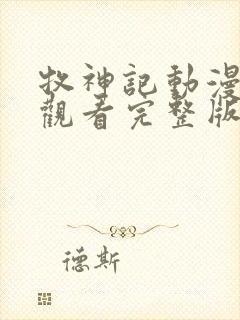 牧神記動漫
觀看完整版
德斯